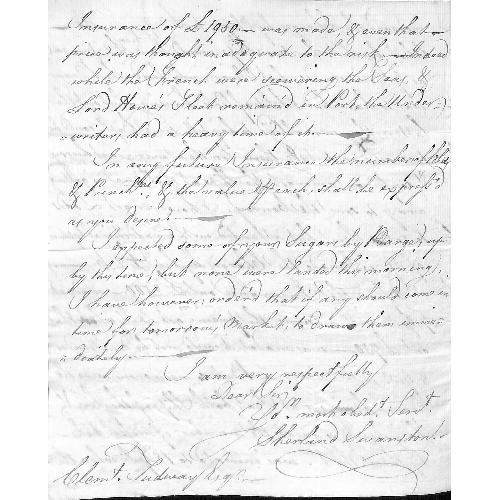 Insurance of £1980 — was made, & even that
price was thought inadequate to the risk — Indeed
while the French were scowering the Seas, &
Lord Howes Fleet remained in Port, the Under-
-writers had a heavy time of it. —
In any future Insurance the number of Hhds
& Punchns, & the value of each, shall be express'd
as you desire. —
I expected some of your Sugars by Parge up
by this time, but none were landed this morning,
I have however order'd that if any should come in
time for tomorrow's Market, to draw them imme-
-diately. —
I am very respectfully
Dear Sir
Yor. most obedt. Servt.
Sherland Swanston.
Clemt. Tudway Esqr.